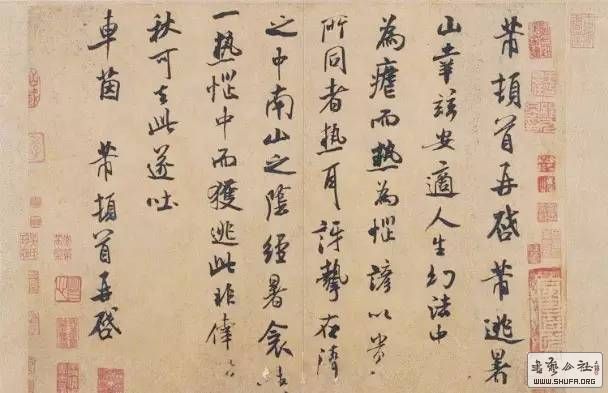 芾頓首再啓芾逃暑
山幸兹安適人生幻法中
為瘧而熱為惱諺以貴
所同者熱耳訝挈在清
之中南山之陰經暑衾
一熱惱中而獲逃此非幸
秋可去此遂吐
車茵 芾頓首再啓
書藝公社
WWW.SHUFA.ORG